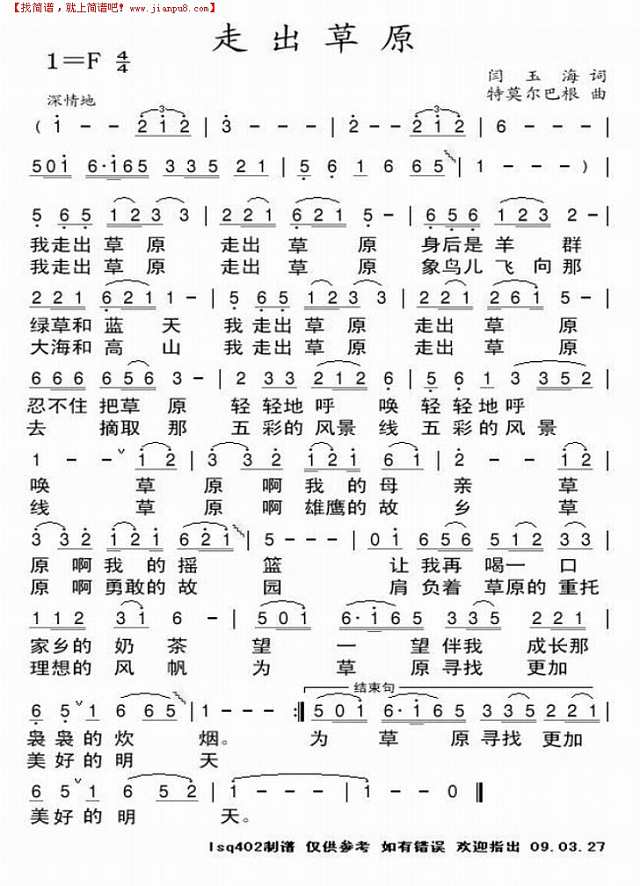 【找简谱，就上简谱吧! www.jianpu8.com】
走出草原
1=F 4/4
闫玉海 词
特莫尔巴根 曲
深情地
( 1 - - 2 1 2 | 3 - - - | 2 - - 2 1 2 | 6 - - - |
5 0 1 6 · 1 6 5 3 3 5 2 1 | 5 6 1 6 6 5 | 1 - - - ) |
5 6 5 1 2 3 3 | 2 2 1 6 2 1 5 - | 6 5 6 1 2 3 2 - |
我走出草原 走出草原 身后是羊群
我走出草原 走出草原 象鸟儿飞向那
2 2 1 6 2 1 1 - | 5 6 5 1 2 3 3 | 2 2 1 2 6 1 5 - |
绿草和蓝天 我走出草原 走出草原
大海和高山 我走出草原 走出草原
6 6 6 6 5 6 3 - | 2 3 3 2 1 2 6 | 5 6 1 3 3 5 2 |
忍不住把草原 轻轻地呼唤 轻轻地呼
去摘取那 五彩的风景线 五彩的风景
1 - - 1 2 | 3 3 2 1 2 1 6 1 | 2 - - 1 2 |
唤 草原啊我的母亲 草
线 草原啊雄鹰的故乡 草
3 3 2 1 2 1 6 2 1 | 5 - - - | 0 1 6 5 6 5 1 2 3 |
原啊我的摇篮 让我再喝一口
原啊勇敢的故园 肩负着草原的重托
1 1 2 3 1 6 - | 5 0 1 6 · 1 6 5 3 3 5 2 2 1 |
家乡的奶茶 望一望伴我成长那
理想的风帆 为草原寻找更加
结束句
6 5 1 6 6 5 | 1 - - - :‖ 5 0 1 6 · 1 6 5 3 3 5 2 2 1 |
袅袅的炊烟。 为草原寻找更加
美好的明天
6 5 1 2 6 5 2 | 1 - - - | 1 - - - ‖
美好的明天。
lsq402制谱 仅供参考 如有错误 欢迎指出 09.03.27